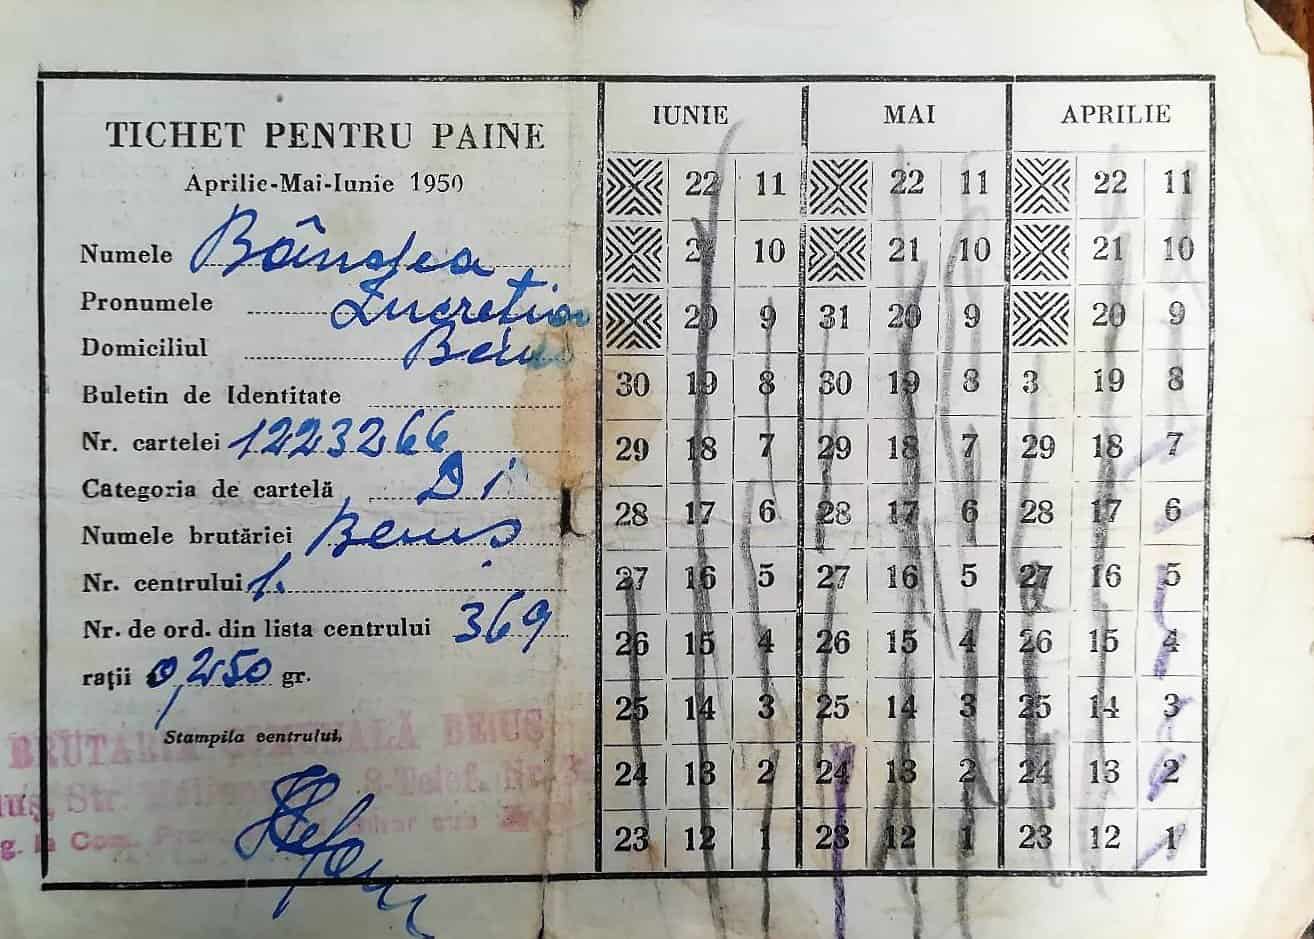 TICHET PENTRU PAINE
Aprilie-Mai-Iunie 1950
Numele
Pronumele Lucreția
Domiciliul Beiuș
Buletin de Identitate
Nr. cartelei 1223266
Categoria de cartelă D i
Numele brutăriei Beiuș
Nr. centrului 1.
Nr. de ord. din lista centrului 369
rații 0,250 gr.
Stampila centrului,
BRUTARIA COMUNALĂ BEIUȘ
Str. 8-Telef. Nr. 3
la Com.
IUNIE MAI APRILIE
22 11 22 11 22 11
2 10 21 10 21 10
20 9 31 20 9 20 9
30 19 8 30 19 8 3 19 8
29 18 7 29 18 7 29 18 7
28 17 6 28 17 6 28 17 6
27 16 5 27 16 5 27 16 5
26 15 4 26 15 4 26 15 4
25 14 3 25 14 3 25 14 3
24 13 2 24 13 2 24 13 2
23 12 1 23 12 1 23 12 1